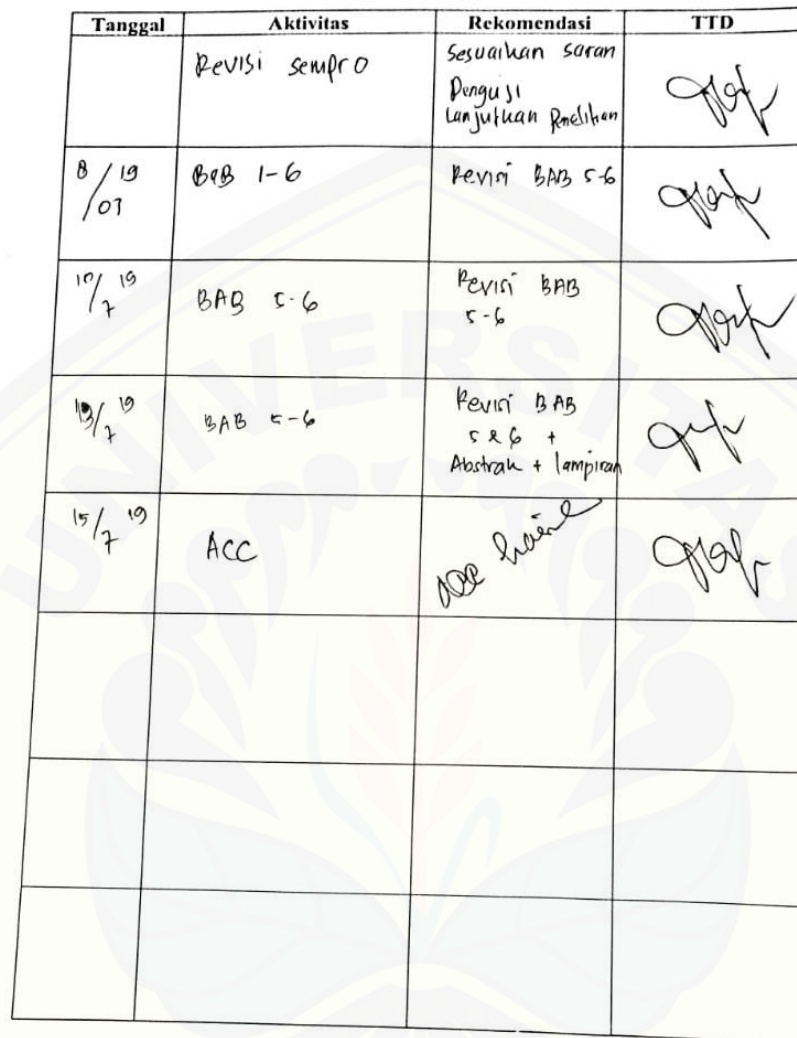 Tanggal Aktivitas Rekomendasi TTD
Revisi sempro
Sesuaikan saran
Penguji
Lanjutkan Penelitian
8/07 19
BAB 1-6
Revisi BAB 5-6
10/7 19
BAB 5-6
Revisi BAB
5-6
13/7 19
BAB 5-6
Revisi BAB
5 & 6 +
Abstrak + lampiran
15/7 19
ACC
acc
UNIVERSITAS